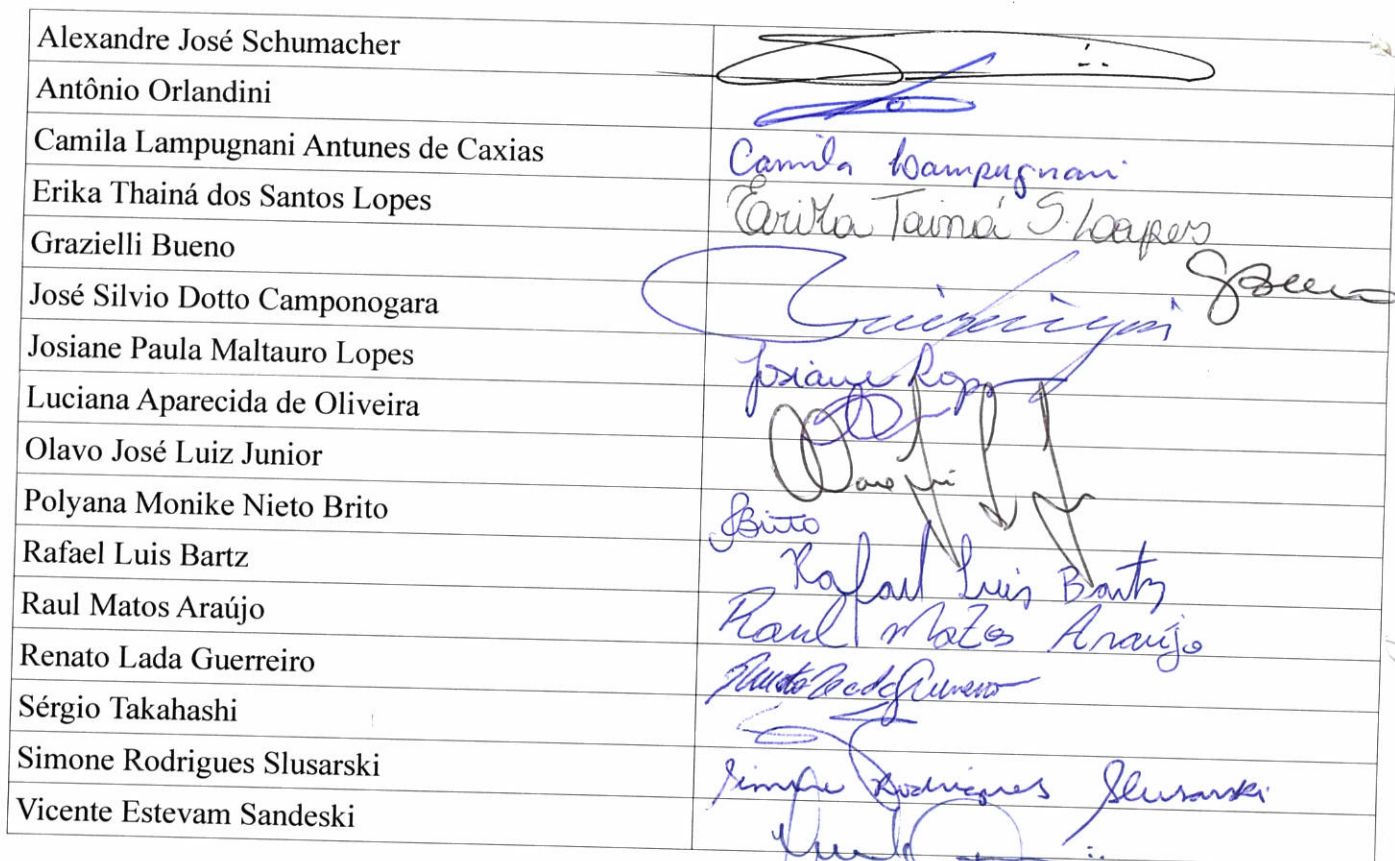 Alexandre José Schumacher
Antônio Orlandini
Camila Lampugnani Antunes de Caxias Camila Lampugnani
Erika Thainá dos Santos Lopes Erika Tainá S. Loapes
Grazielli Bueno GBueno
José Silvio Dotto Camponogara
Josiane Paula Maltauro Lopes Josiane Lopes
Luciana Aparecida de Oliveira
Olavo José Luiz Junior
Polyana Monike Nieto Brito PBrito
Rafael Luis Bartz Rafael Luis Bartz
Raul Matos Araújo Raul Matos Araújo
Renato Lada Guerreiro Renato Lada Guerreiro
Sérgio Takahashi
Simone Rodrigues Slusarski Simone Rodrigues Slusarski
Vicente Estevam Sandeski